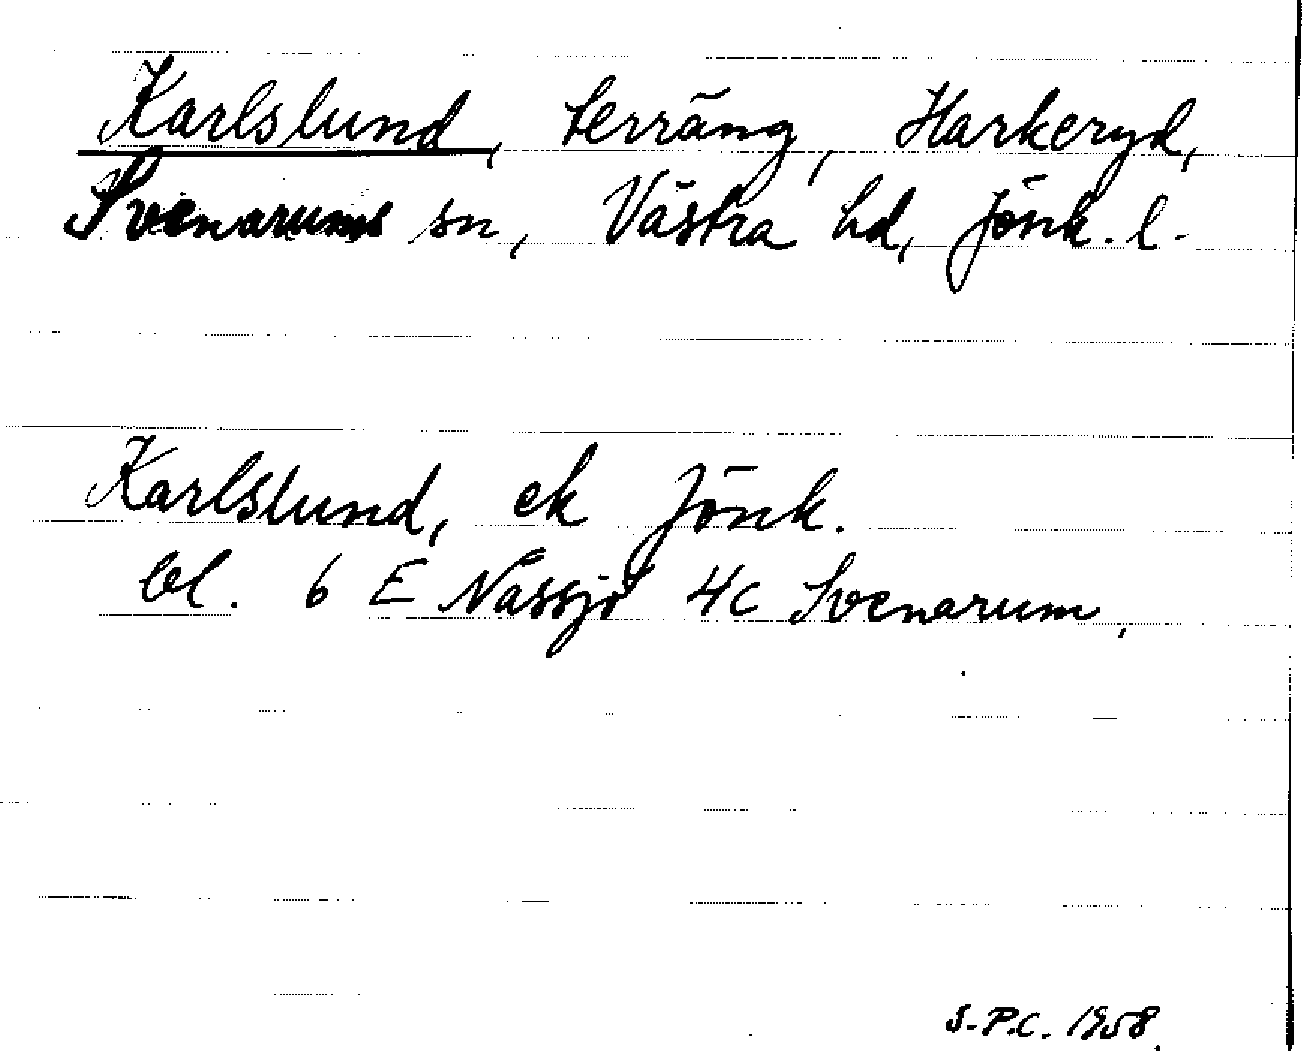 Karlslund, terräng, Harkeryd,
Svenarums sn, Västra hd, Jönk. l.
Karlslund, ek Jönk.
bl. 6 E Nässjö 4c Svenarum,
S.P.C. 1958